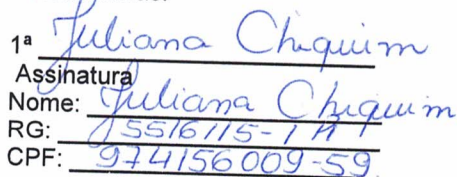 1ª Juliana Chiquim
Assinatura
Nome: Juliana Chiquim
RG: 5516115-1
CPF: 974156009-59